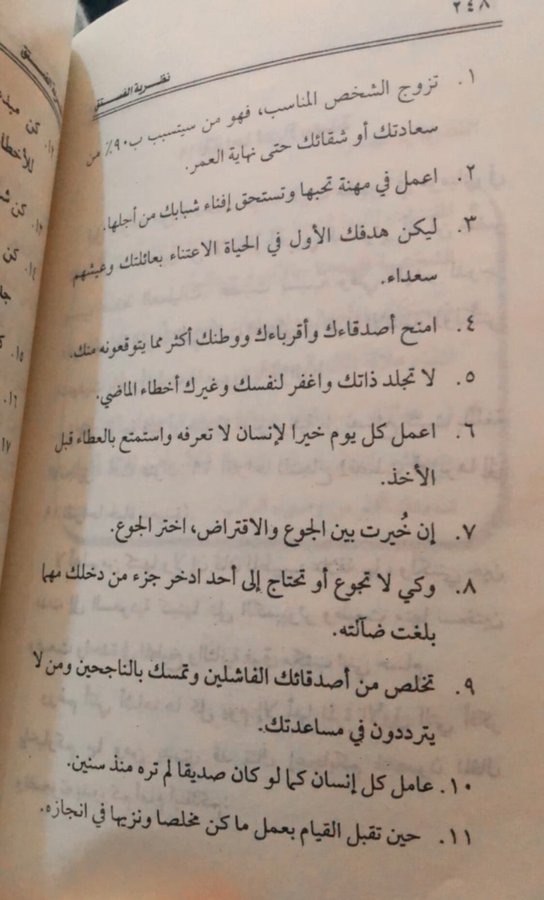 ٢٤٨
نظرية الفستق
١. تزوج الشخص المناسب، فهو من سيتسبب ب٩٠٪ من
سعادتك أو شقائك حتى نهاية العمر.
٢. اعمل في مهنة تحبها وتستحق إفناء شبابك من أجلها.
٣. ليكن هدفك الأول في الحياة الاعتناء بعائلتك وعيشهم
سعداء.
٤. امنح أصدقاءك وأقرباءك ووطنك أكثر مما يتوقعونه منك.
٥. لا تجلد ذاتك واغفر لنفسك وغيرك أخطاء الماضي.
٦. اعمل كل يوم خيرا لإنسان لا تعرفه واستمتع بالعطاء قبل
الأخذ.
٧. إن خُيرت بين الجوع والاقتراض، اختر الجوع.
٨. وكي لا تجوع أو تحتاج إلى أحد ادخر جزء من دخلك مهما
بلغت ضآلته.
٩. تخلص من أصدقائك الفاشلين وتمسك بالناجحين ومن لا
يترددون في مساعدتك.
١٠. عامل كل إنسان كما لو كان صديقا لم تره منذ سنين.
١١. حين تقبل القيام بعمل ما كن مخلصا ونزيها في انجازه.